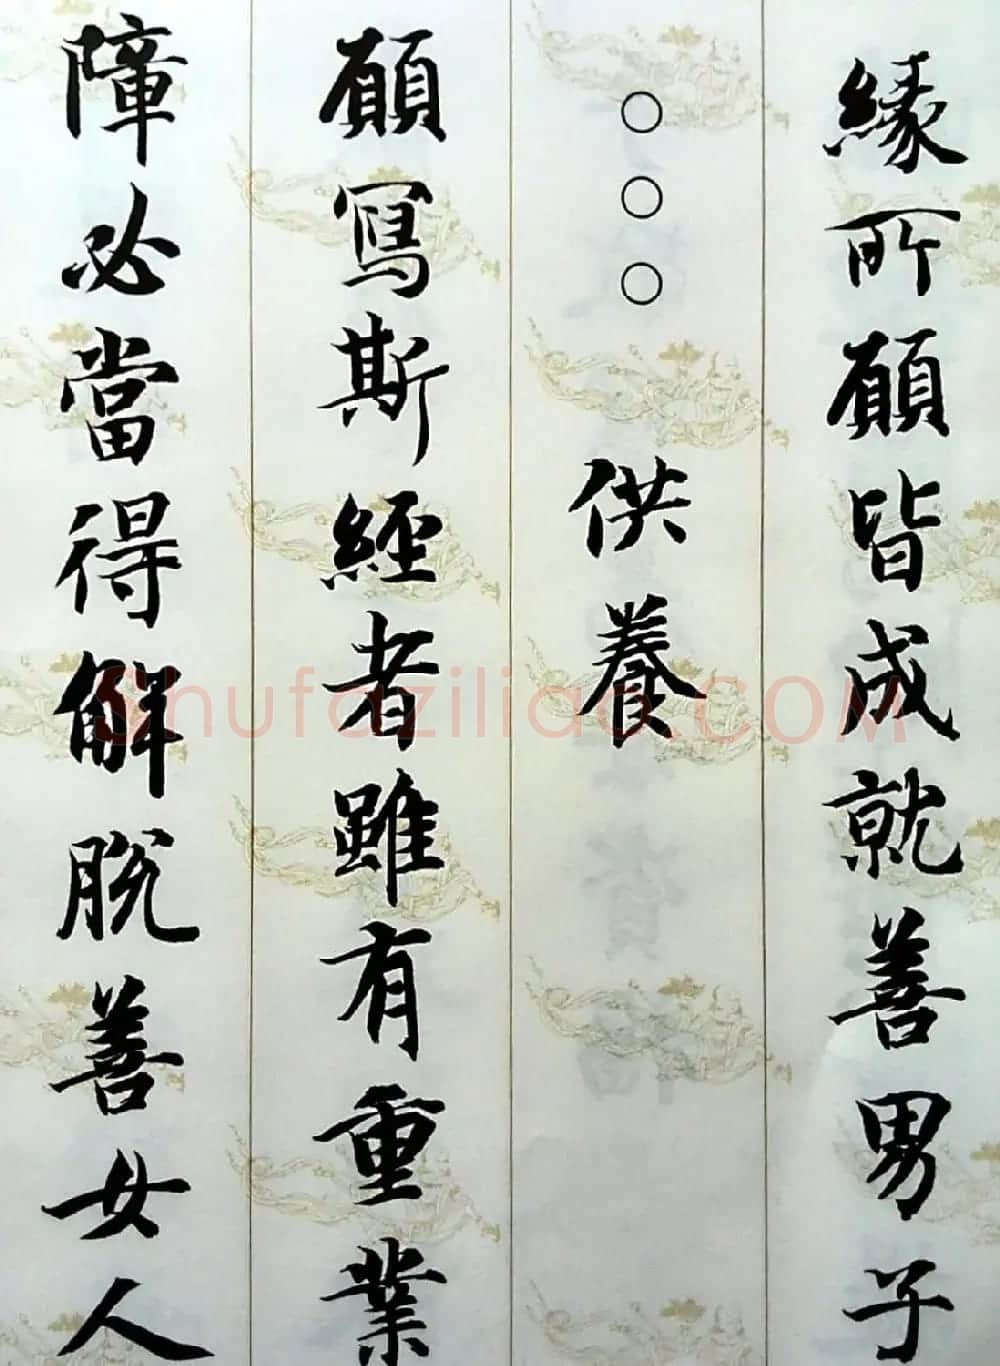 緣所願皆成就善男子
○○○供養
願寫斯經者雖有重業
障必當得解脫善女人
Shufaziliao.COM